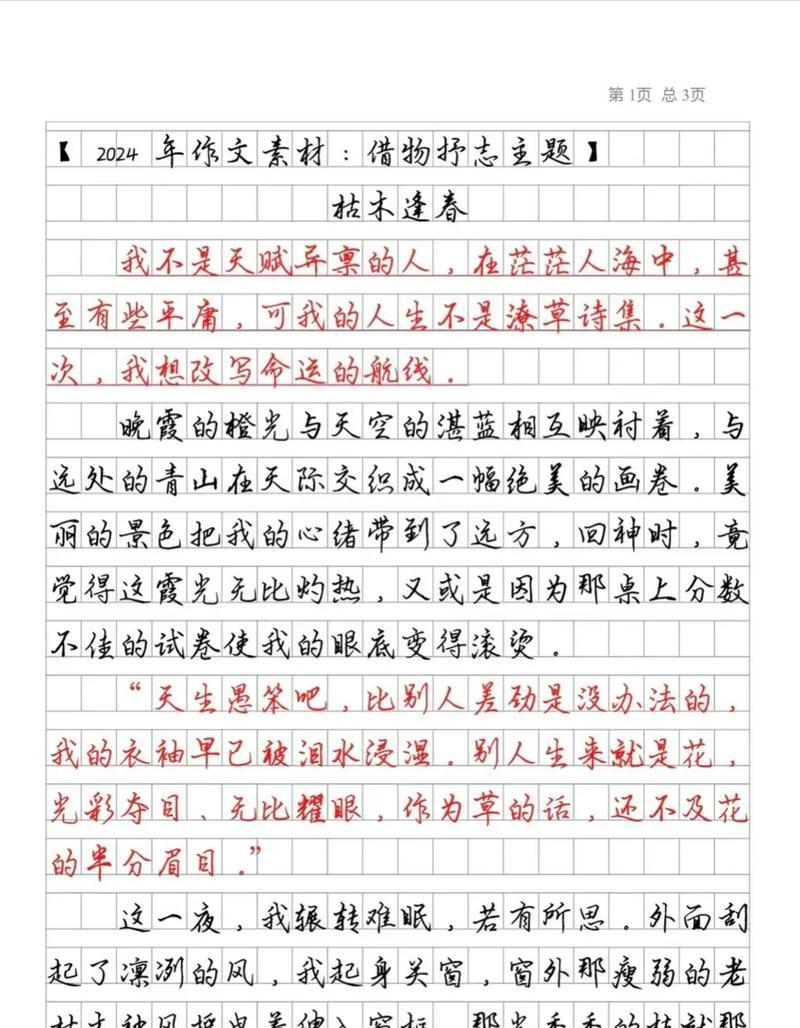 第1页 总3页
【 2024 年作文素材：借物抒志主题】
枯木逢春
我不是天赋异禀的人，在茫茫人海中，甚
至有些平庸，可我的人生不是潦草诗集。这一
次，我想改写命运的航线。
晚霞的橙光与天空的湛蓝相互映衬着，与
远处的青山在天际交织成一幅绝美的画卷。美
丽的景色把我的心绪带到了远方，回神时，竟
觉得这霞光无比灼热，又或是因为那桌上分数
不佳的试卷使我的眼底变得滚烫。
“天生愚笨吧，比别人差劲是没办法的，
我的衣袖早已被泪水浸湿。别人生来就是花，
光彩夺目、无比耀眼，作为草的话，还不及花
的半分眉目。”
这一夜，我辗转难眠，若有所思。外面刮
起了凛冽的风，我起身关窗，窗外那瘦弱的老